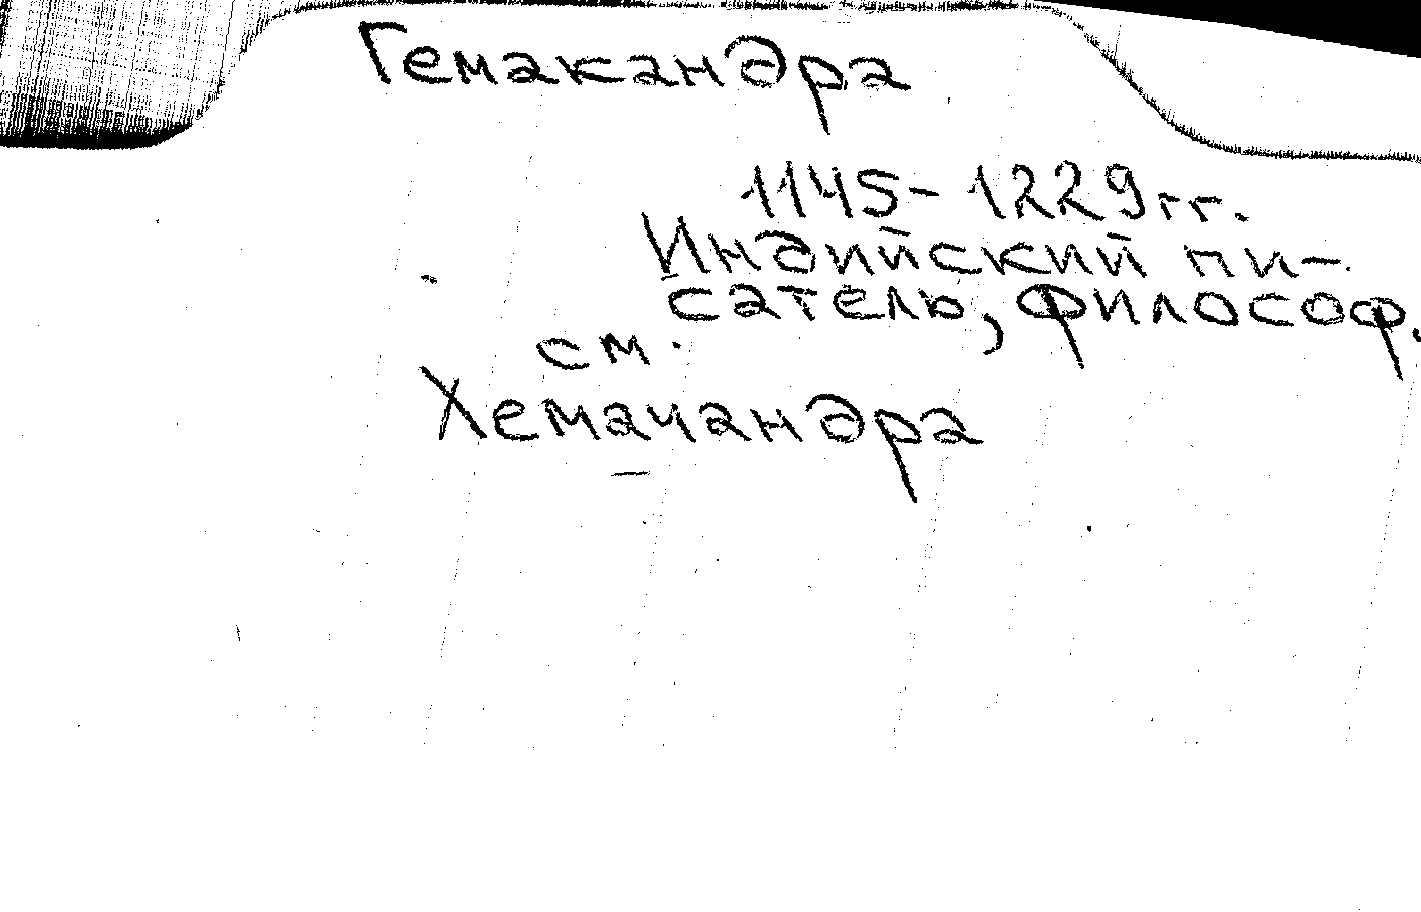 Гемакандра
1145-1229гг.
Индийский пи-
сатель, философ.
см.
Хемачандра